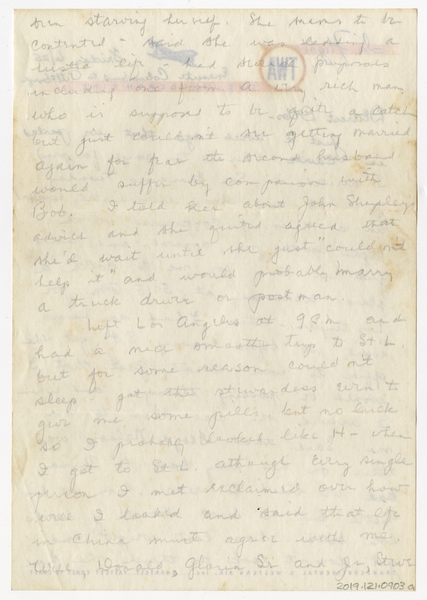 been starving herself. She seems to be
contented - said she was leading a
busy life - had several proposals
including one from a very rich man
who is supposed to be quite a catch
but just couldn't see getting married
again for fear the second husband
would suffer by comparison with
Bob. I told her about John Shepley's
advice and she quite agreed that
she'd wait until she just "couldn't
help it" and would probably marry
a truck driver or postman.
Left Los Angeles at 9 P.M. and
had a nice smooth trip to St L.
but for some reason couldn't
sleep - got the stewardess even to
give me some pills but no luck
so I probably looked like H- when
I got to St L. although every single
person I met exclaimed over how
well I looked and said that life
in China must agree with me.
Donald, Gloria Sr. and Jr, Steve
TWA
2019.121.0903a